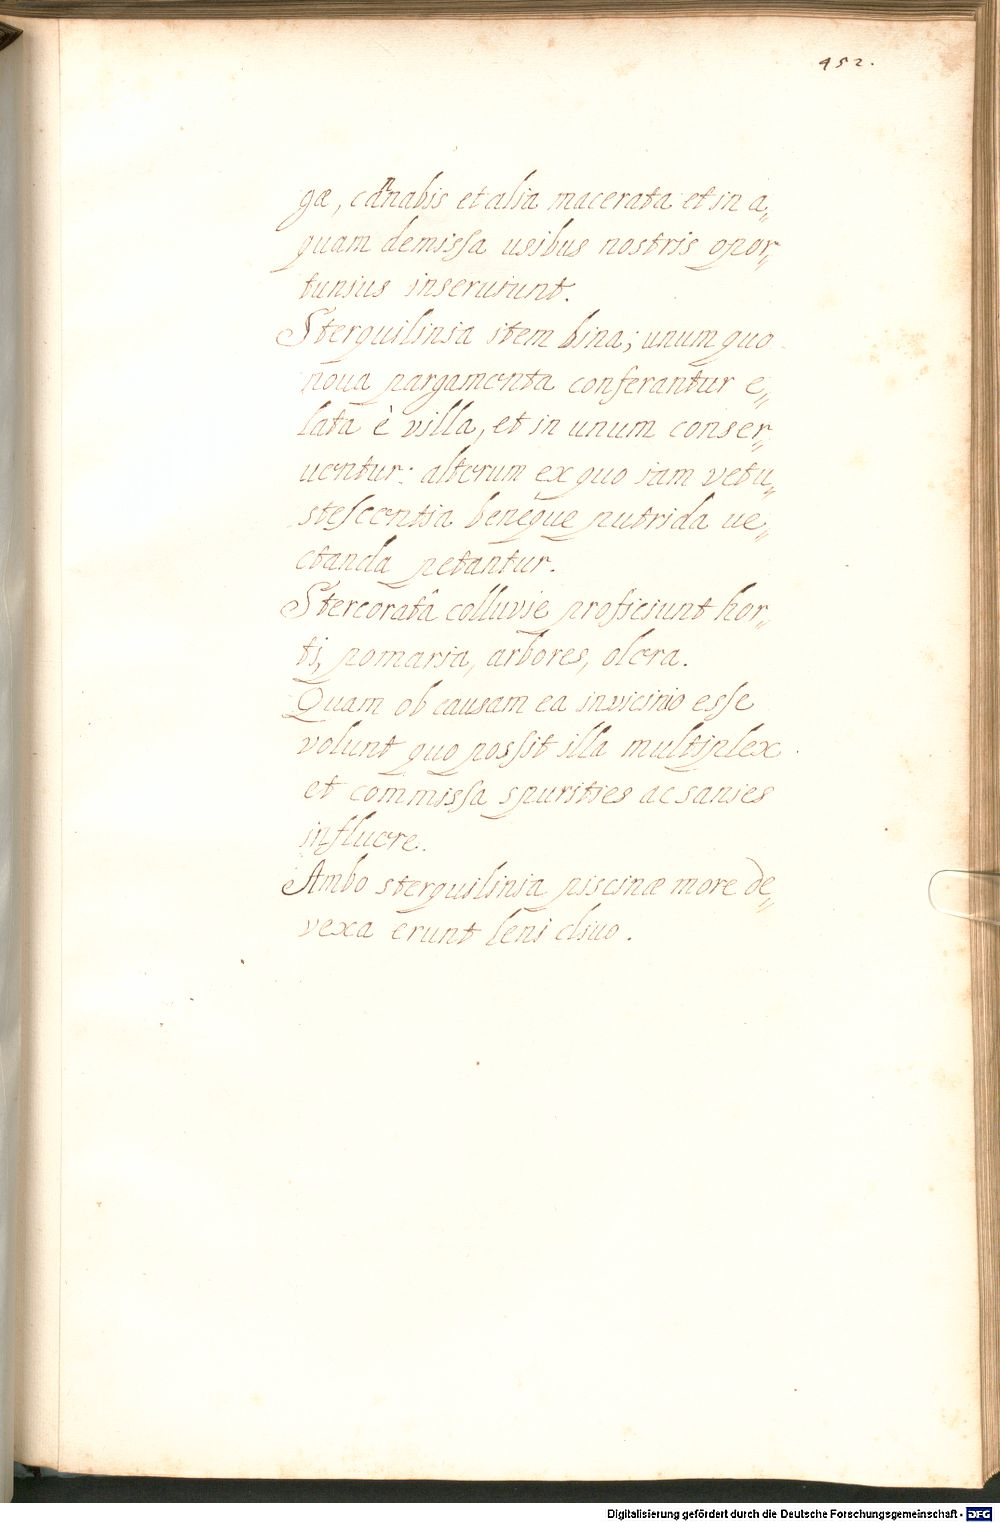 452.
gæ, cannabis et alia macerata et in a„
quam demissa usibus nostris opor„
tunius inseruiunt.
Sterquilinia item bina; unum quo
noua pargamenta conferantur e„
lata è villa, et in unum conser„
uentur: alterum ex quo iam vetu„
stescentia beneque putrida ue„
ctanda petantur.
Stercoratâ colluvie proficiunt hor„
ti, pomaria, arbores, olera.
Quam ob causam ea in vicinio esse
volunt quo possit illa multiplex
et commissa spurities ac sanies
influere.
Ambo sterquilinia piscinæ more de„
vexa erunt leni cliuo.
Digitalisierung gefördert durch die Deutsche Forschungsgemeinschaft - DFG